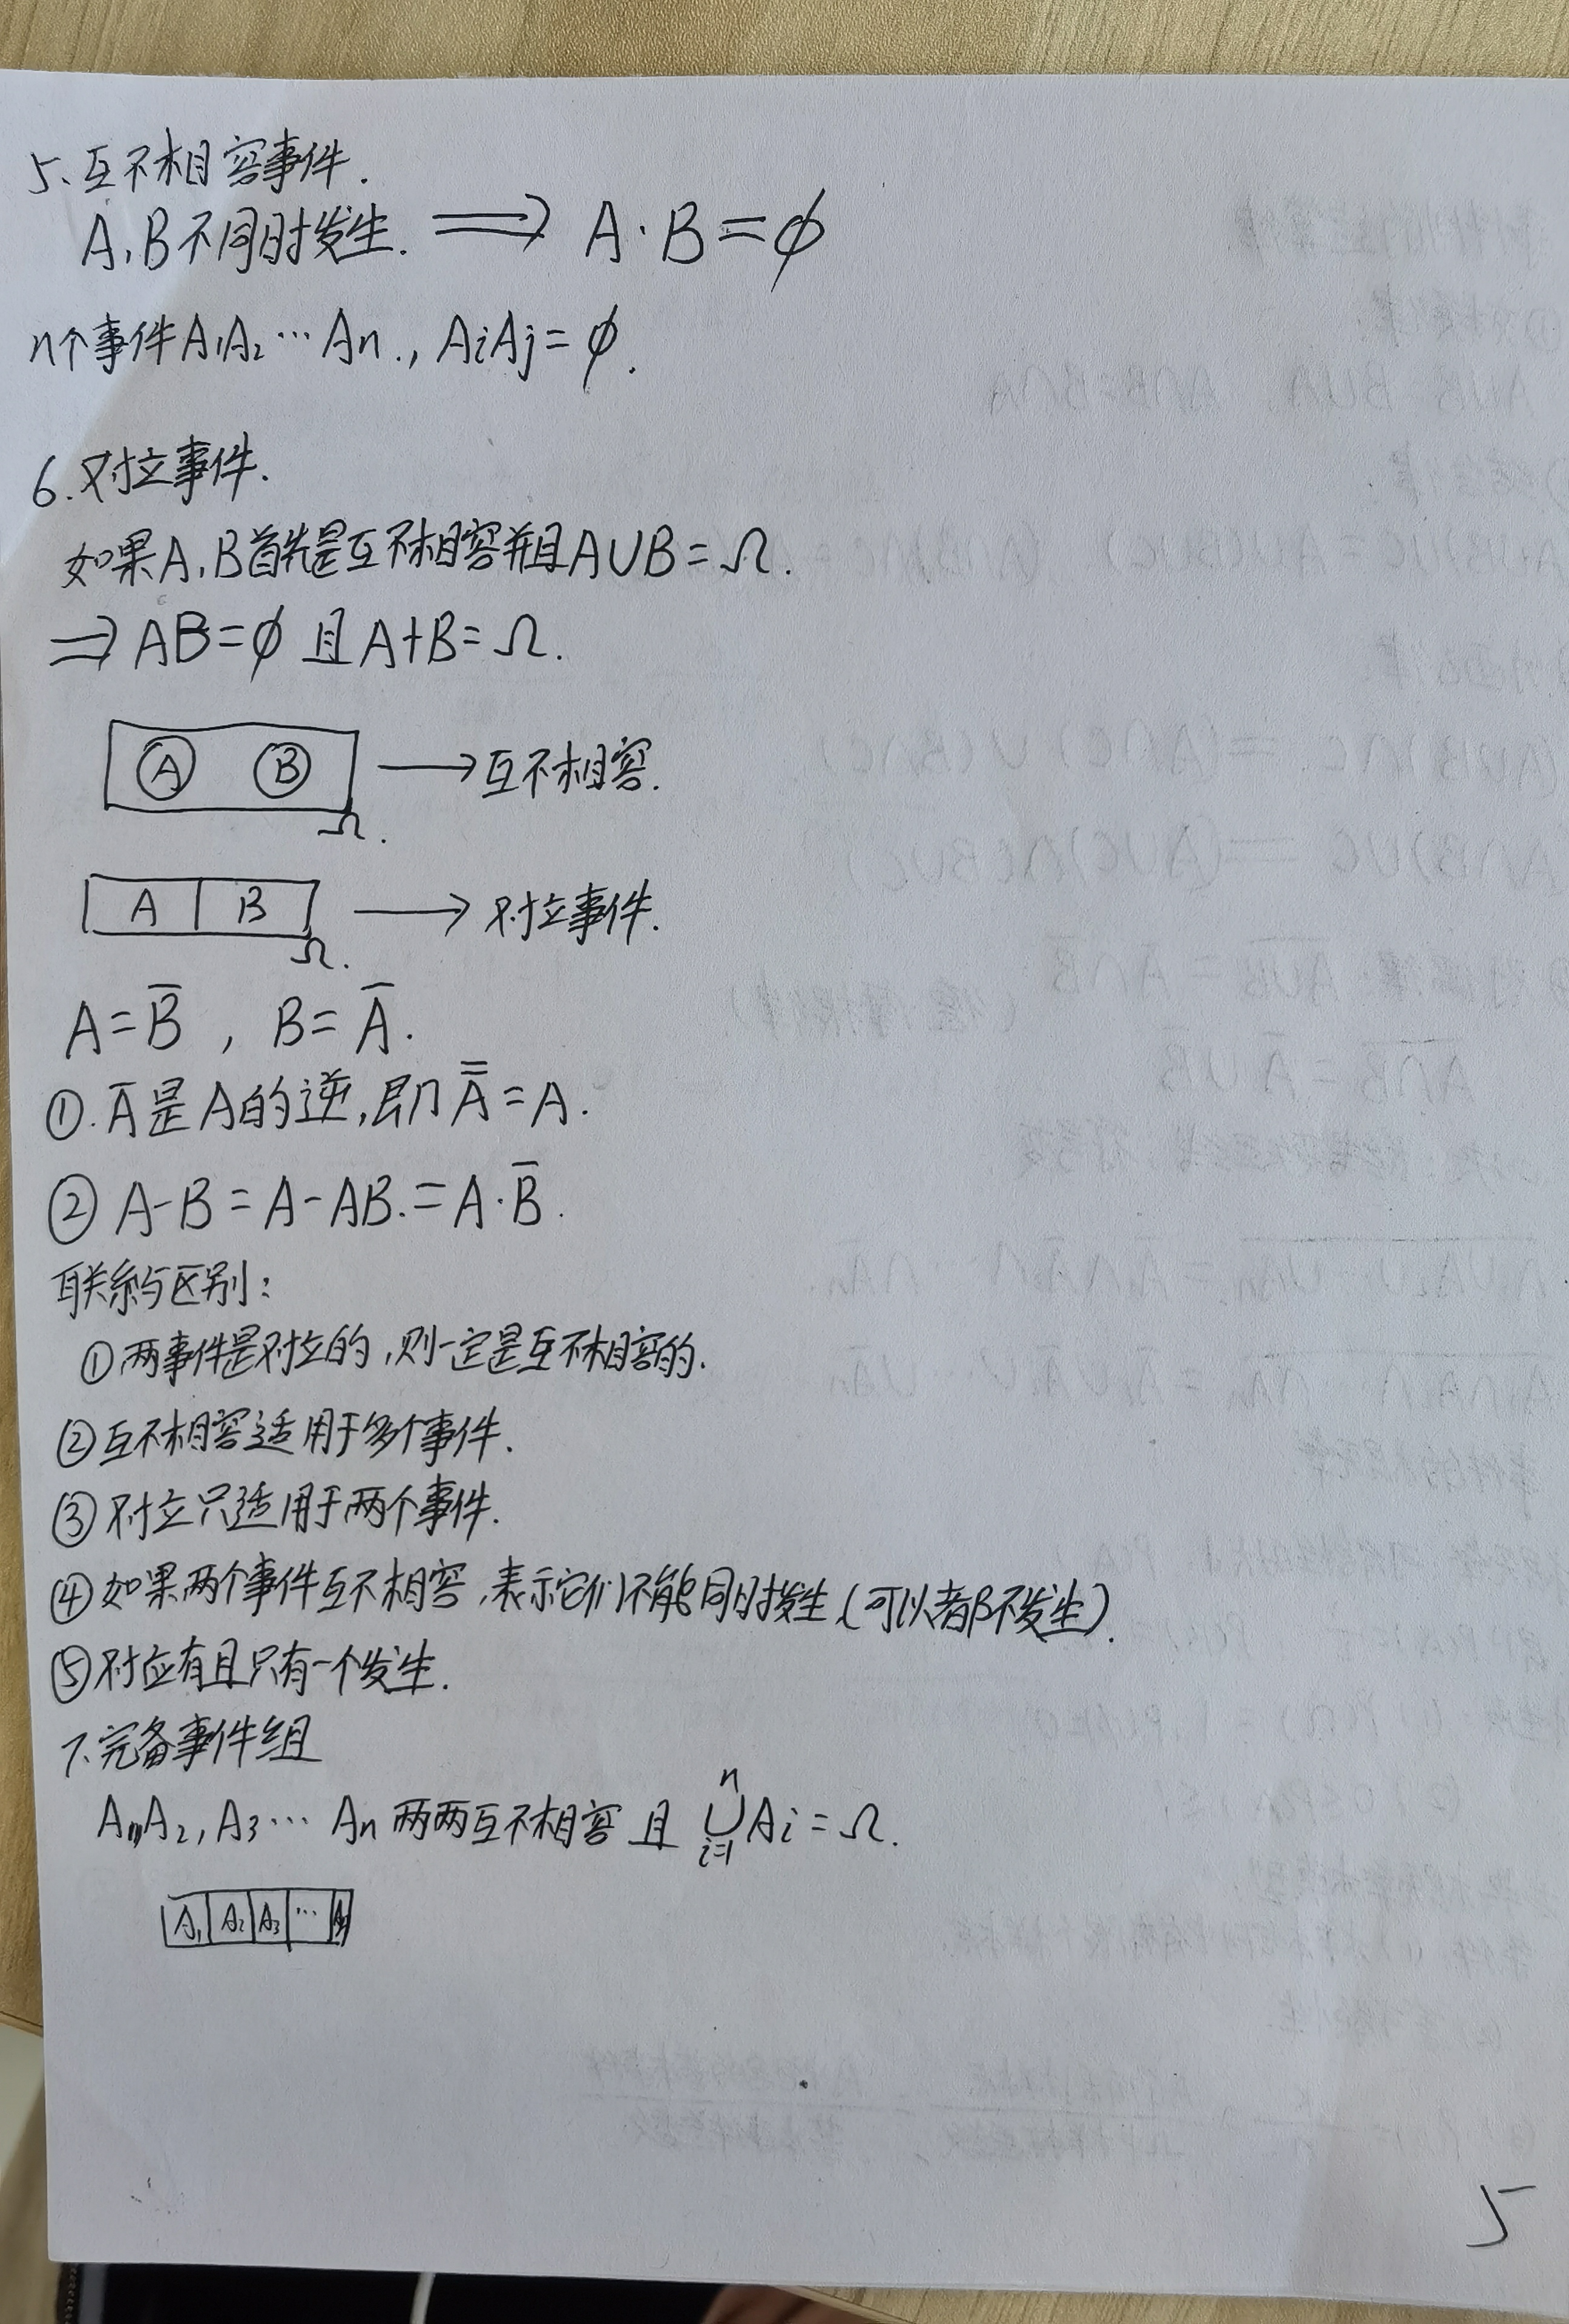 5、互不相容事件.
A,B不同时发生. ⟹ A·B=φ
n个事件A₁A₂…An., AiAj=φ.
6.对立事件.
如果A,B首先是互不相容并且A∪B=Ω.
⟹ AB=φ 且A+B=Ω.
A B → 互不相容.
Ω.
A B → 对立事件.
Ω.
A=B̅ , B=A̅.
①.A̅是A的逆,即A̿=A.
②A-B=A-AB.=A·B̅.
联系与区别:
①两事件是对立的,则一定是互不相容的.
②互不相容适用于多个事件.
③对立只适用于两个事件.
④如果两个事件互不相容,表示它们不能同时发生(可以都不发生).
⑤对应有且只有一个发生.
7.完备事件组
A₁,A₂,A₃…An两两互不相容且 ⋃ⁿᵢ₌₁Ai=Ω.
A₁ A₂ A₃ … An
5